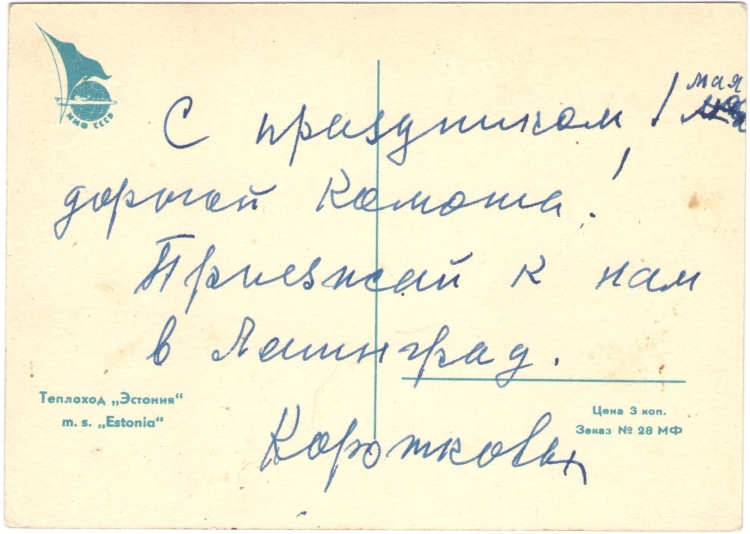 ММФ СССР
С праздником 1 мая
дорогой Камоша!
Приезжай к нам
в Ленинград.
Теплоход „Эстония“
m. s. „Estonia“
Цена 3 коп.
Заказ № 28 МФ
Коротковы